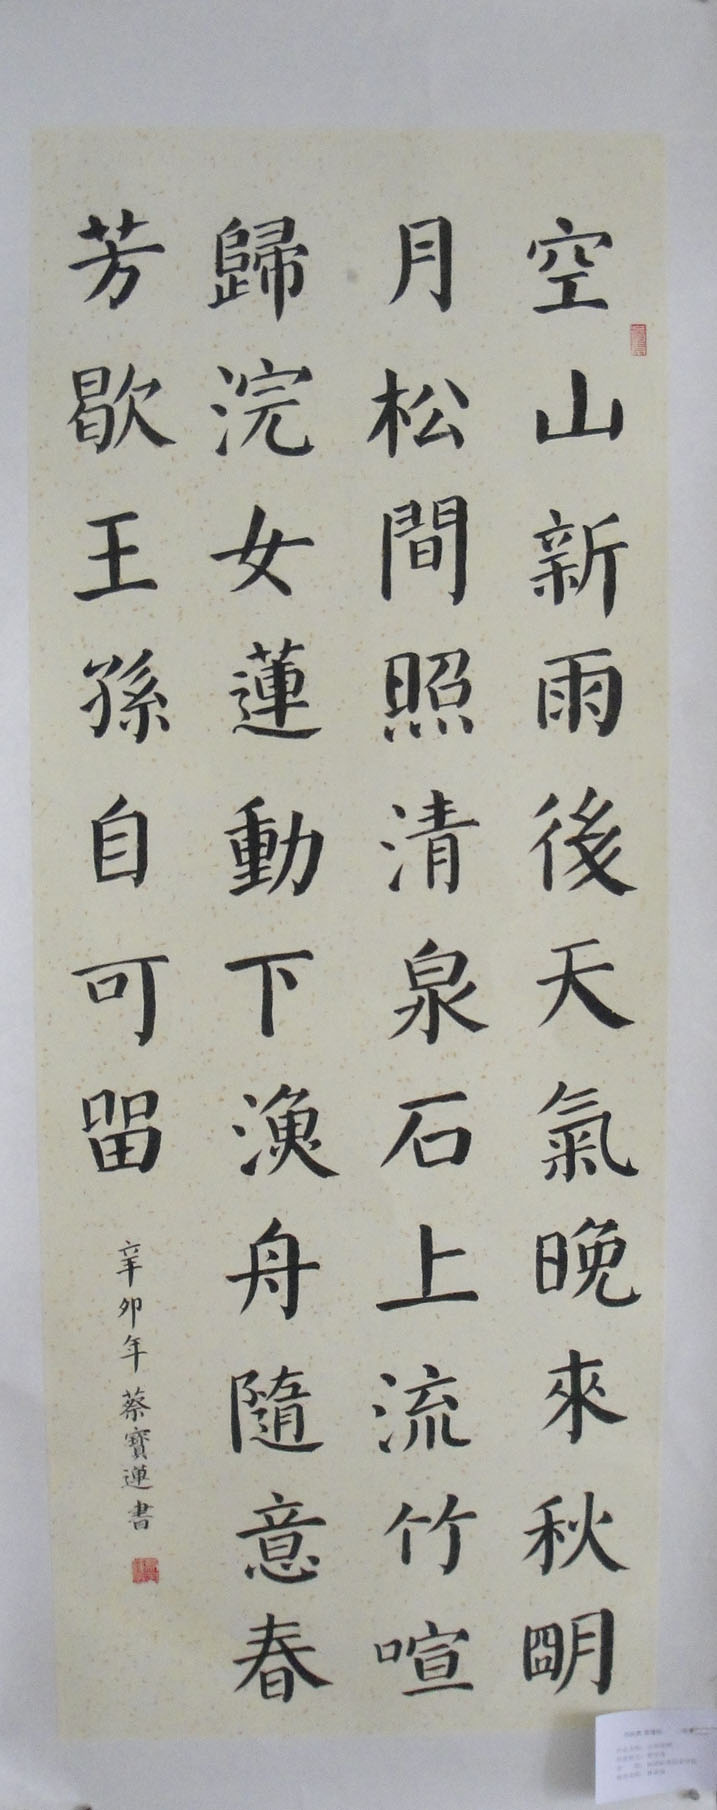 空山新雨後天氣晚來秋明
月松間照清泉石上流竹喧
歸浣女蓮動下漁舟隨意春
芳歇王孫自可留
辛卯年蔡寶蓮書